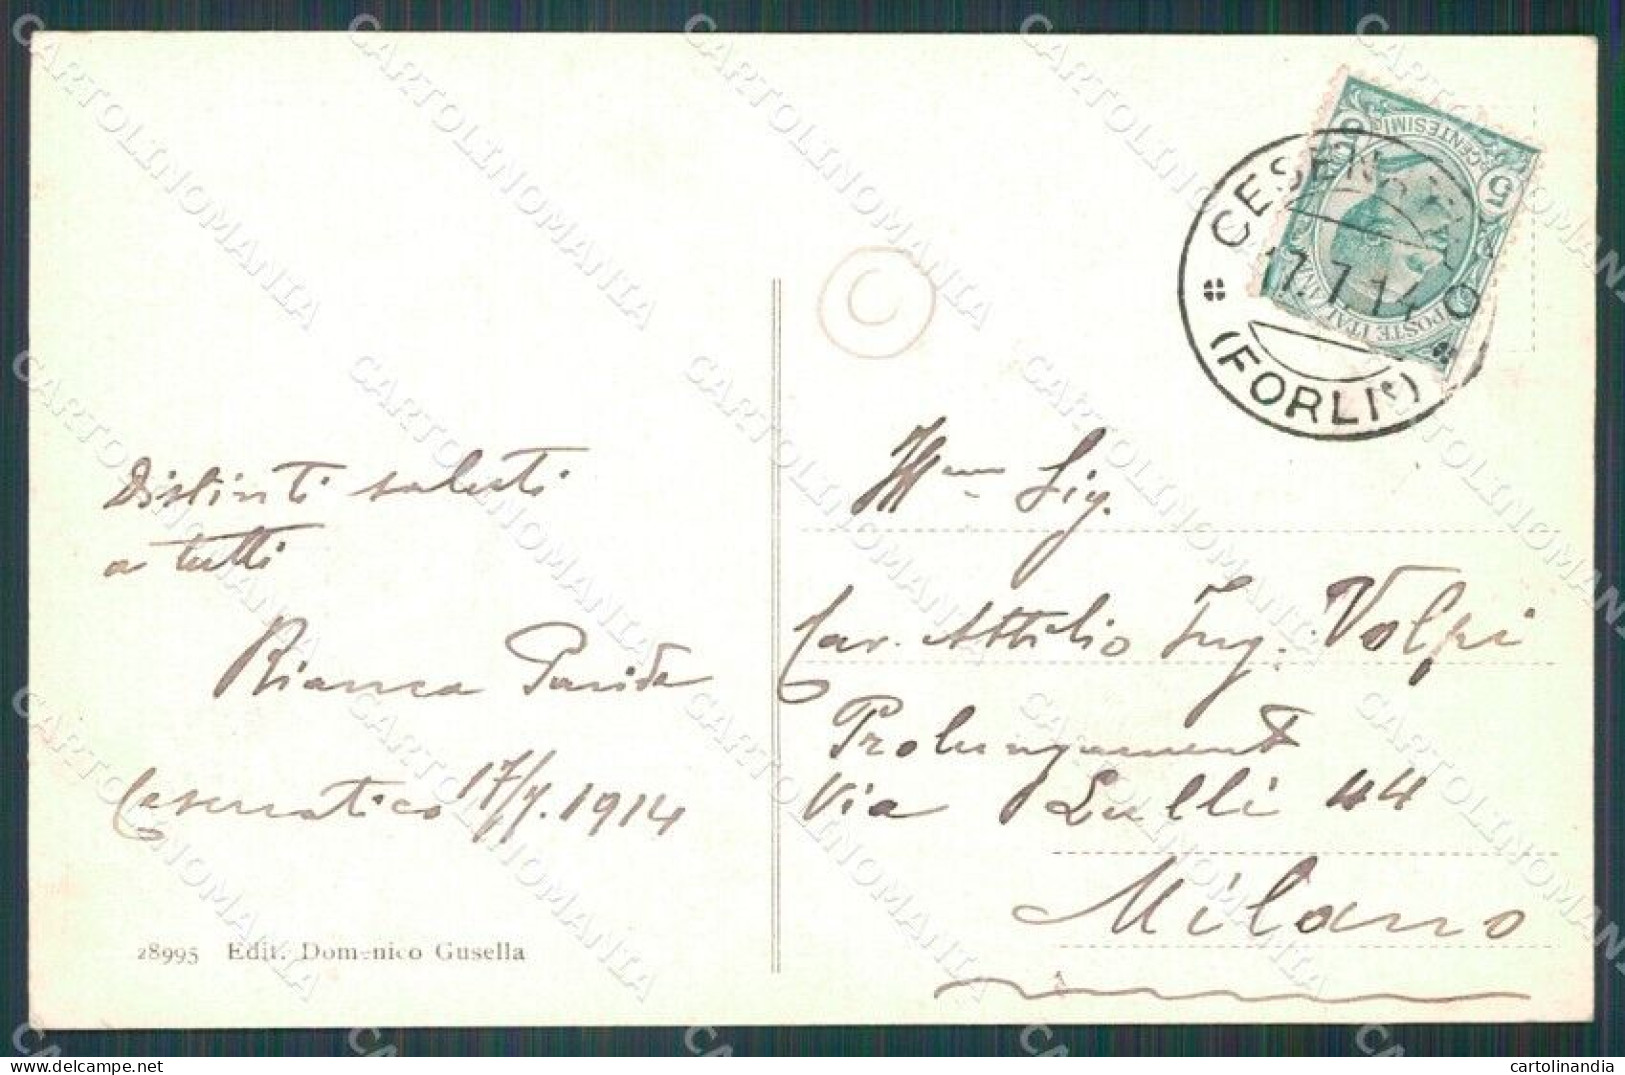 CESENATICO
17.7.14
(FORLI)
POSTE ITALIANE
CENTESIMI
5 5
C
Distinti saluti
a tutti
Bianca
Cesenatico 17/7.1914
Ill.mo Sig.
Cav. Attilio Ing. Volpi
Prolungamento
Via Lulli 44
Milano
28995 Edit. Domenico Gusella
CARTOLINOMANIA
cartolinandia